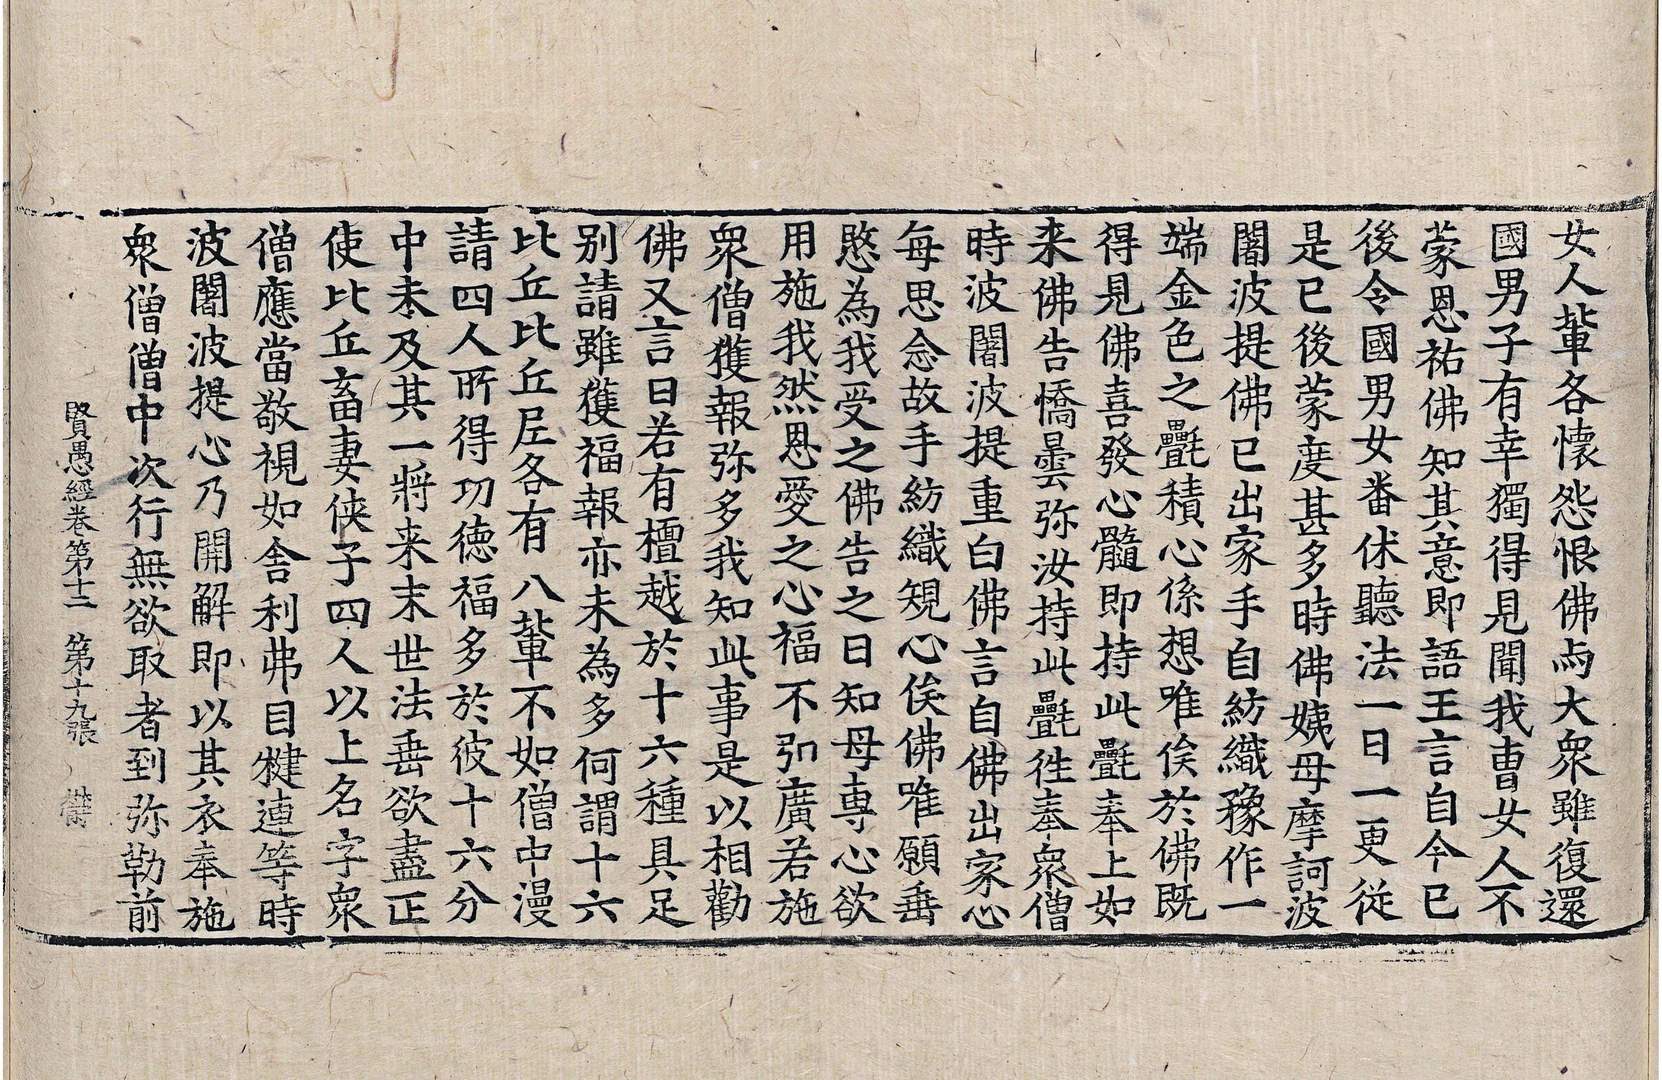 女人輩各懷怨恨佛与大衆雖復還
國男子有幸獨得見聞我曹女人不
蒙恩祐佛知其意即語王言自今已
後令國男女番休聽法一日一更從
是已後蒙度甚多時佛姨母摩訶波
闍波提佛已出家手自紡織豫作一
端金色之㲲積心係想唯俟於佛既
得見佛喜發心髓即持此㲲奉上如
来佛告憍曇弥汝持此㲲往奉衆僧
時波闍波提重白佛言自佛出家心
每思念故手紡織規心俟佛唯願垂
愍為我受之佛告之曰知母專心欲
用施我然恩愛之心福不弘廣若施
衆僧獲報弥多我知此事是以相勸
佛又言曰若有檀越於十六種具足
别請雖獲福報亦未為多何謂十六
比丘比丘尼各有八輩不如僧中漫
請四人所得功德福多於彼十六分
中未及其一將来末世法垂欲盡正
使比丘畜妻俠子四人以上名字衆
僧應當敬視如舍利弗目犍連等時
波闍波提心乃開解即以其衣奉施
衆僧僧中次行無欲取者到弥勒前
賢愚經卷第十二 第十九張 欝